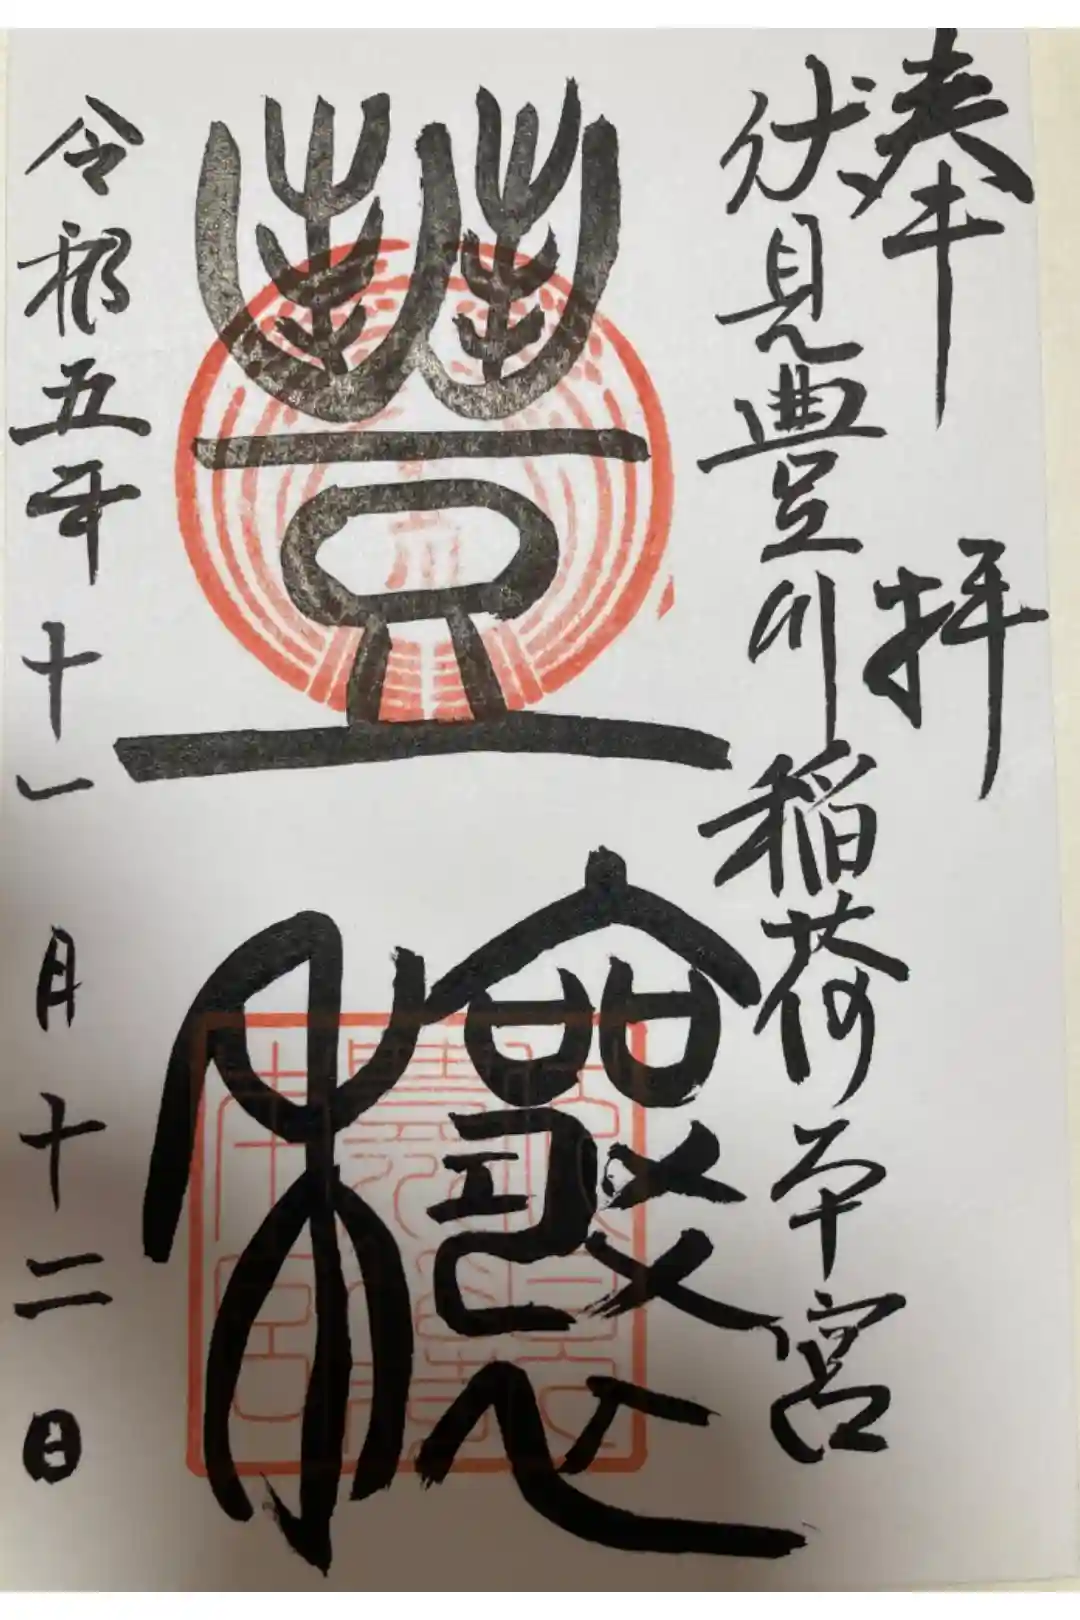 奉拝
伏見豊川稲荷本宮
豊穣
令和五年十一月十二日